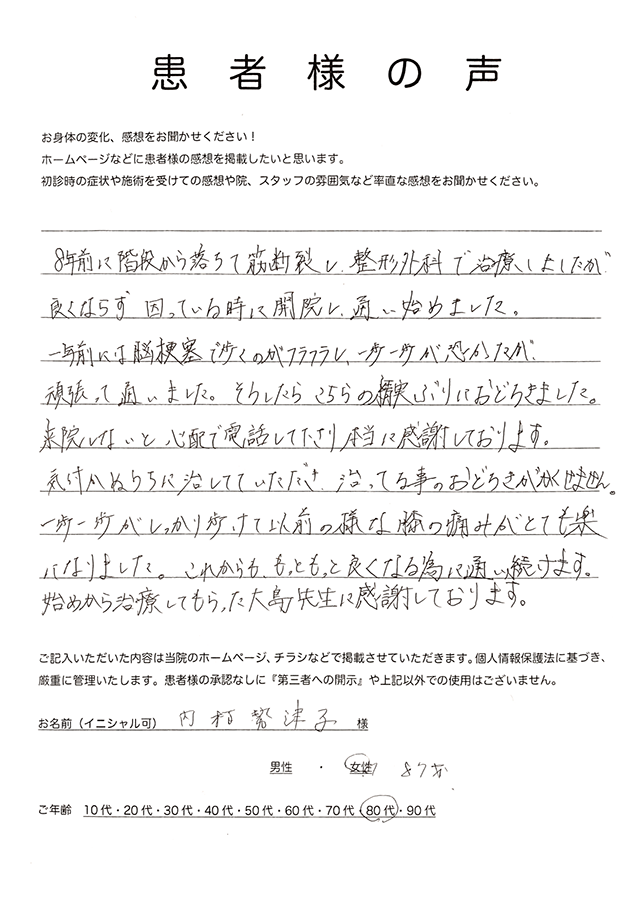 患者様の声
お身体の変化、感想をお聞かせください！
ホームページなどに患者様の感想を掲載したいと思います。
初診時の症状や施術を受けての感想や院、スタッフの雰囲気など率直な感想をお聞かせください。
8年前に階段から落ちて筋断裂し、整形外科で治療しましたが
良くならず 困っている時に開院し、通い始めました。
前には脳梗塞で歩くのがフラフラし、一歩一歩が恐かったが、
頑張って通いました。そうしたらこちらの誠実ぶりにおどろきました。
来院しないと心配で電話してくださり本当に感謝しております。
気付かぬうちに治してていただき、治ってる事のおどろきがかくせません。
一歩一歩がしっかり歩けて以前の様な膝の痛みがとても楽
になりました。これからも、もっともっと良くなる為に通い続けます。
始めから治療してもらった大島先生に感謝しております。
ご記入いただいた内容は当院のホームページ、チラシなどで掲載させていただきます。個人情報保護法に基づき、
厳重に管理いたします。患者様の承認なしに『第三者への開示』や上記以外での使用はございません。
お名前（イニシャル可） 内村 勢津子 様
男性 ・ 女性 87才
ご年齢 10代・20代・30代・40代・50代・60代・70代・80代・90代